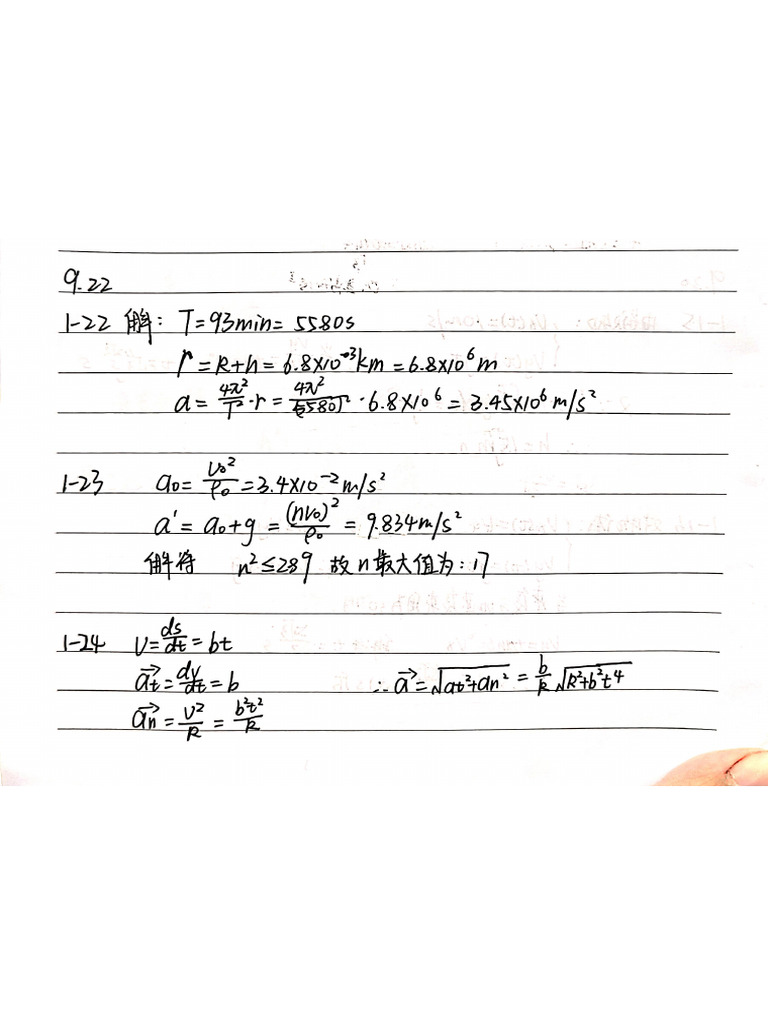 9.22
1-22 解: T=93min=5580s
r=R+h=6.8×10⁻³km=6.8×10⁶m
a=4π²/T²·r=4π²/(5580)²·6.8×10⁶=3.45×10⁶m/s²
1-23 a₀=v₀²/ρ₀=3.4×10⁻²m/s²
a'=a₀+g=(nv₀)²/ρ₀=9.834m/s²
解得 n²≤289 故n最大值为:17
1-24 v=ds/dt=bt
a⃗t=dv/dt=b ∴a⃗=√(at²+an²)=b/R√(R²+b²t⁴)
a⃗n=v²/R=b²t²/R